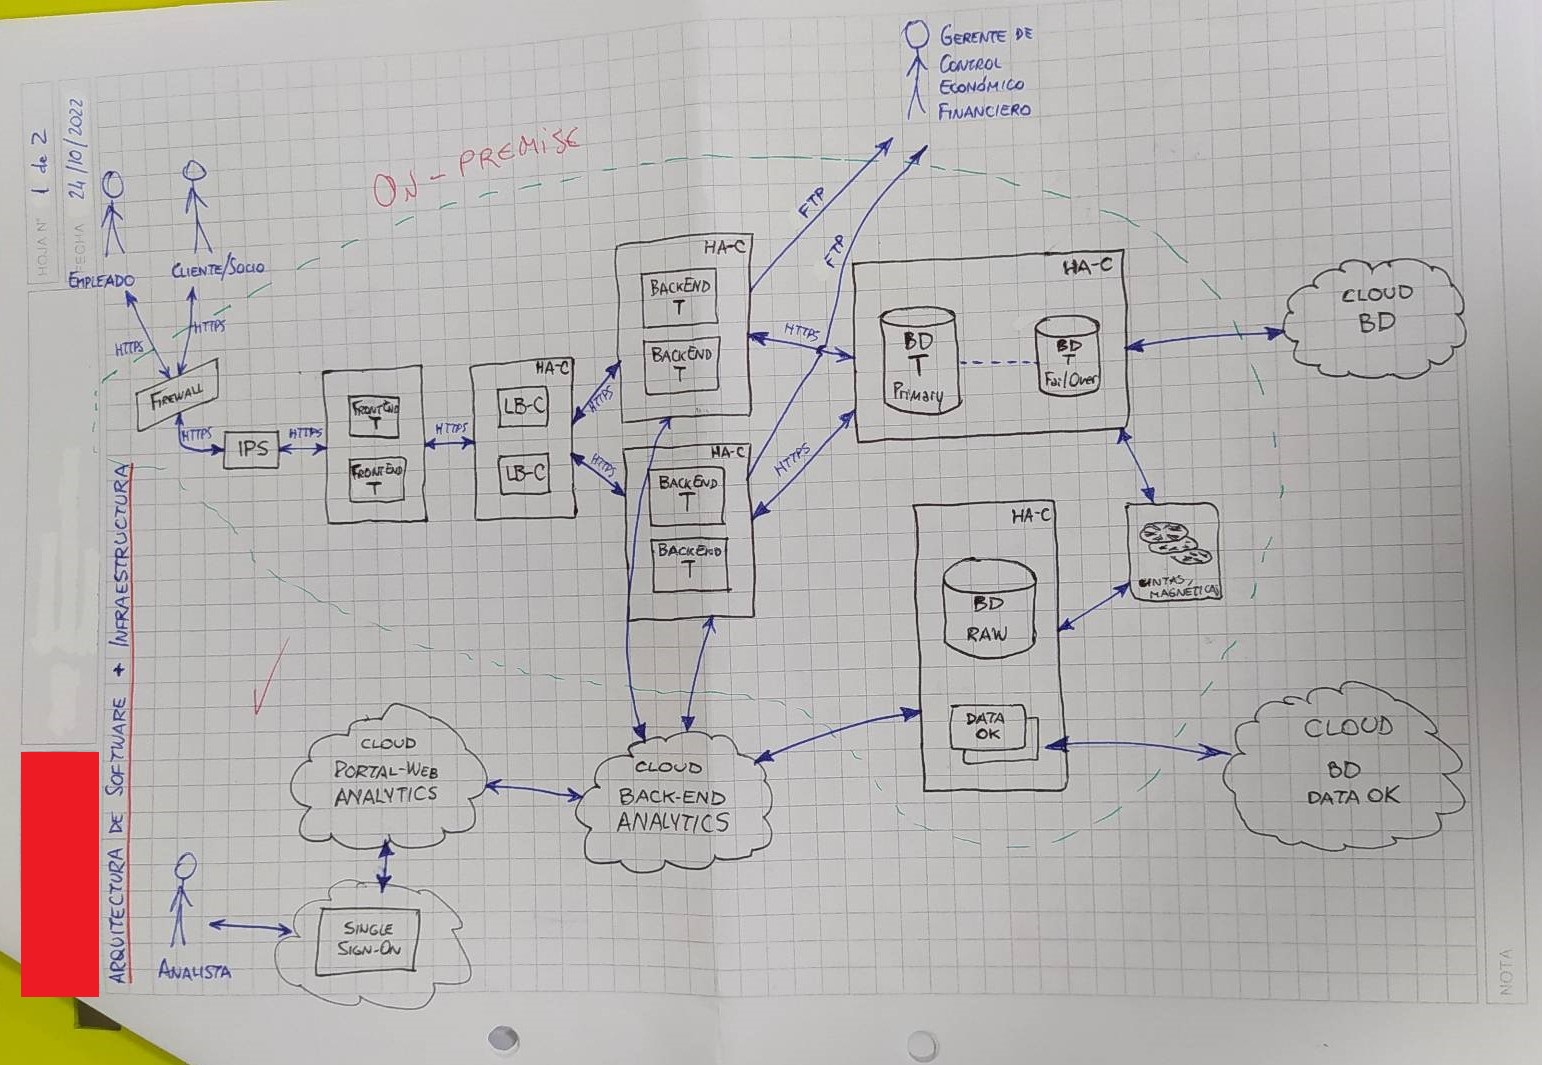 HOJA Nº 1 de 2
FECHA 24/10/2022
ARQUITECTURA DE SOFTWARE + INFRAESTRUCTURA
ON-PREMISE
GERENTE DE
CONTROL
ECONÓMICO
FINANCIERO
EMPLEADO
CLIENTE/SOCIO
HTTPS
HTTPS
FIREWALL
HTTPS
IPS
HTTPS
FRONTEND
T
FRONTEND
T
HTTPS
HA-C
LB-C
LB-C
HTTPS
HTTPS
HA-C
BACKEND
T
BACKEND
T
HA-C
BACKEND
T
BACKEND
T
FTP
FTP
HTTPS
HTTPS
HA-C
BD
T
Primary
BD
T
Fail/Over
CLOUD
BD
CINTAS
MAGNETICAS
HA-C
BD
RAW
DATA
OK
CLOUD
BD
DATA OK
CLOUD
PORTAL-WEB
ANALYTICS
CLOUD
BACK-END
ANALYTICS
SINGLE
SIGN-ON
ANALISTA
NOTA